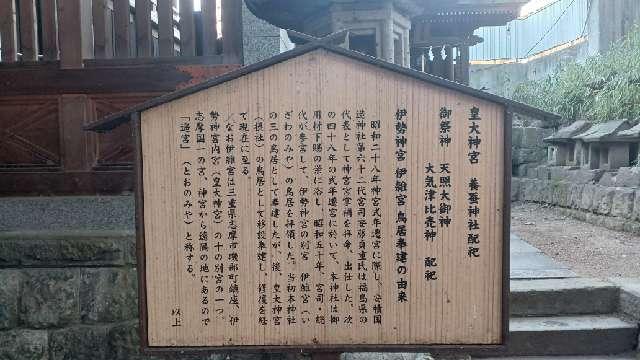 皇大神宮 養蚕神社配祀
御祭神 天照大御神
大気津比売神 配祀
伊勢神宮 伊雜宮 鳥居奉建の由来
昭和二十八年神宮式年遷宮に際し、安積国
造神社第六十二代宮司安藤貞重氏は福島県の
代表として神宮宮掌補を拝命、出仕した。次
の四十八年の式年遷宮に於いて、本神社は御
用材下賜の栄に浴し、昭和五十年、宮司・総
代が参宮して、伊勢神宮の別宮 伊雜宮(い
ざわのみや)の鳥居を拝領した。当初本神社
の三の鳥居として奉建したが、後、皇大神宮
(摂社)の鳥居として移設奉建し、修復を経
て現在に至る。
/なお伊雜宮は三重県志摩市磯部町鎮座、伊
勢神宮内宮(皇大神宮)の十の別宮の一つ。
志摩国一の宮、神宮から遠隔の地にあるので
「遥宮」(とおのみや)と称する。
以上